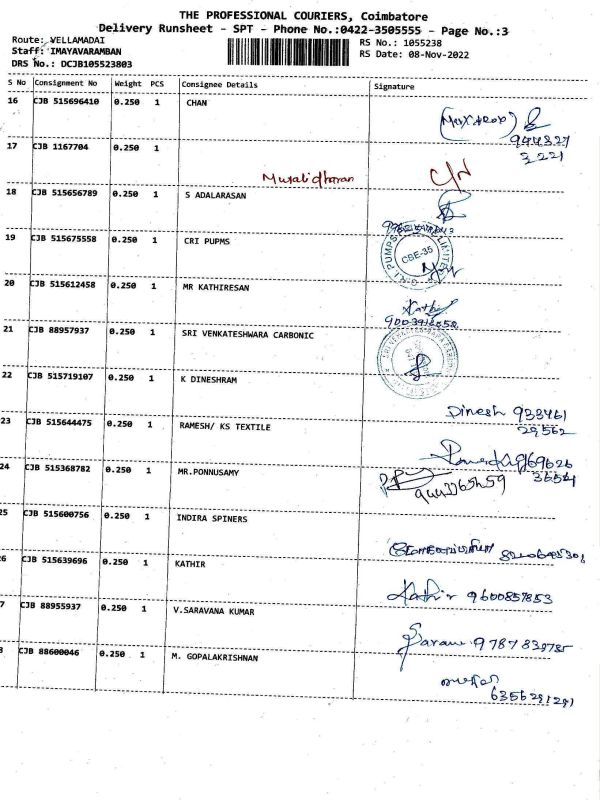 THE PROFESSIONAL COURIERS, Coimbatore
Delivery Runsheet - SPT - Phone No.:0422-3505555 - Page No.:3
Route: VELLAMADAI
RS No.: 1055238
Staff: IMAYAVARAMBAN
RS Date: 08-Nov-2022
DRS No.: DCJB105523803
S No Consignment No Weight PCS Consignee Details Signature
16 CJB 515696410 0.250 1 CHAN
944327
3221
17 CJB 1167704 0.250 1
Muralidharan
18 CJB 515656789 0.250 1 S ADALARASAN
19 CJB 515675558 0.250 1 CRI PUPMS
PUMPS LIMITED
CBE-35
20 CJB 515612458 0.250 1 MR KATHIRESAN
Kathir
21 CJB 88957937 0.250 1 SRI VENKATESHWARA CARBONIC
22 CJB 515719107 0.250 1 K DINESHRAM
Dinesh 933461
29562
23 CJB 515644475 0.250 1 RAMESH/ KS TEXTILE
24 CJB 515368782 0.250 1 MR.PONNUSAMY
25 CJB 515600756 0.250 1 INDIRA SPINERS
6 CJB 515639696 0.250 1 KATHIR
Kathir 9600857853
7 CJB 88955937 0.250 1 V.SARAVANA KUMAR
8 CJB 88600046 0.250 1 M. GOPALAKRISHNAN
6355291291